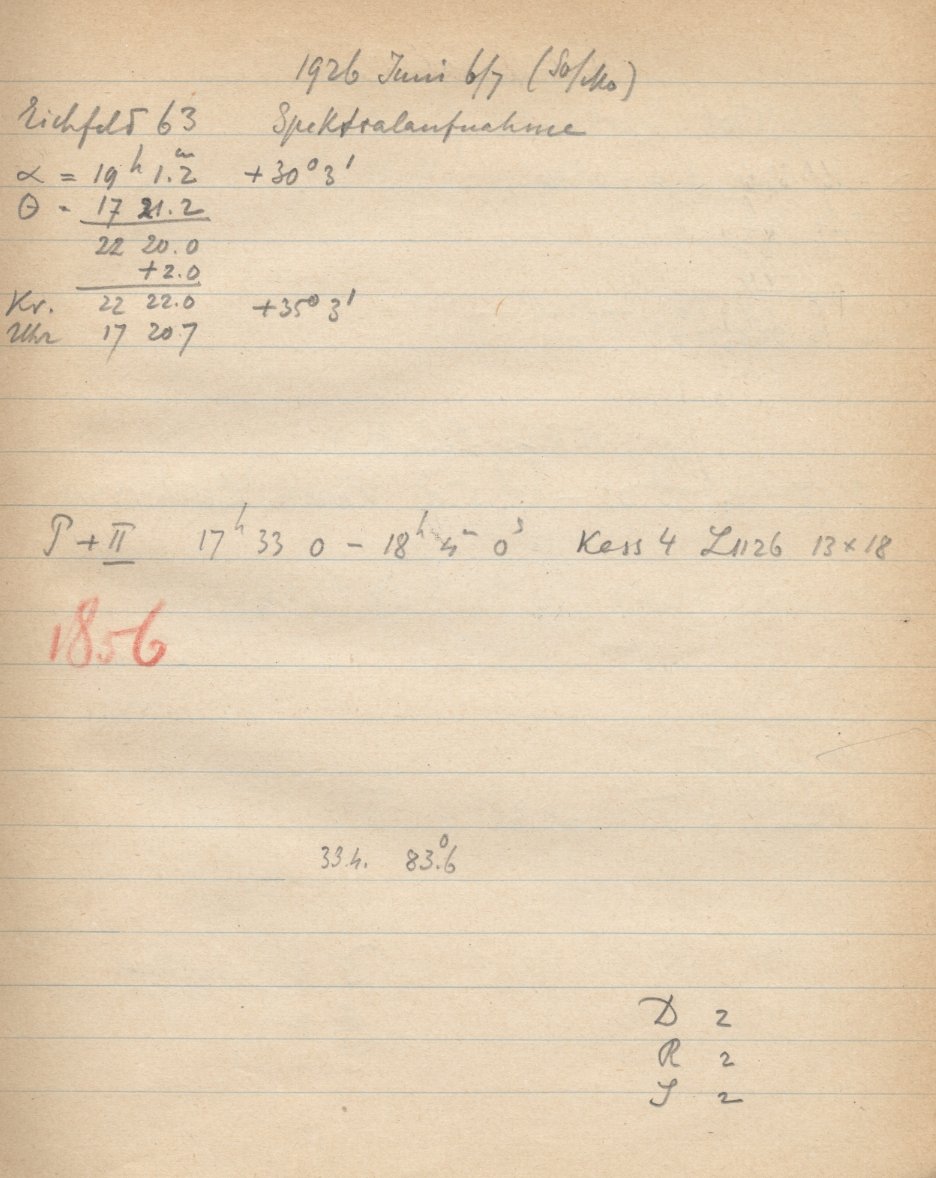 1926 Juni 6/7 (So/Mo)
Eichfeld 63 Spektralaufnahme
α = 19ʰ 1.ᵐ2 +30° 3'
θ = 17 21.2
22 20.0
+2.0
Kr. 22 22.0 +35° 3'
Uhr 17 20.7
I + II 17ʰ 33 0 – 18ʰ 4ᵐ 0ˢ Kass 4 L1126 13×18
1856
33.h. 83.°6
D 2
R 2
S 2